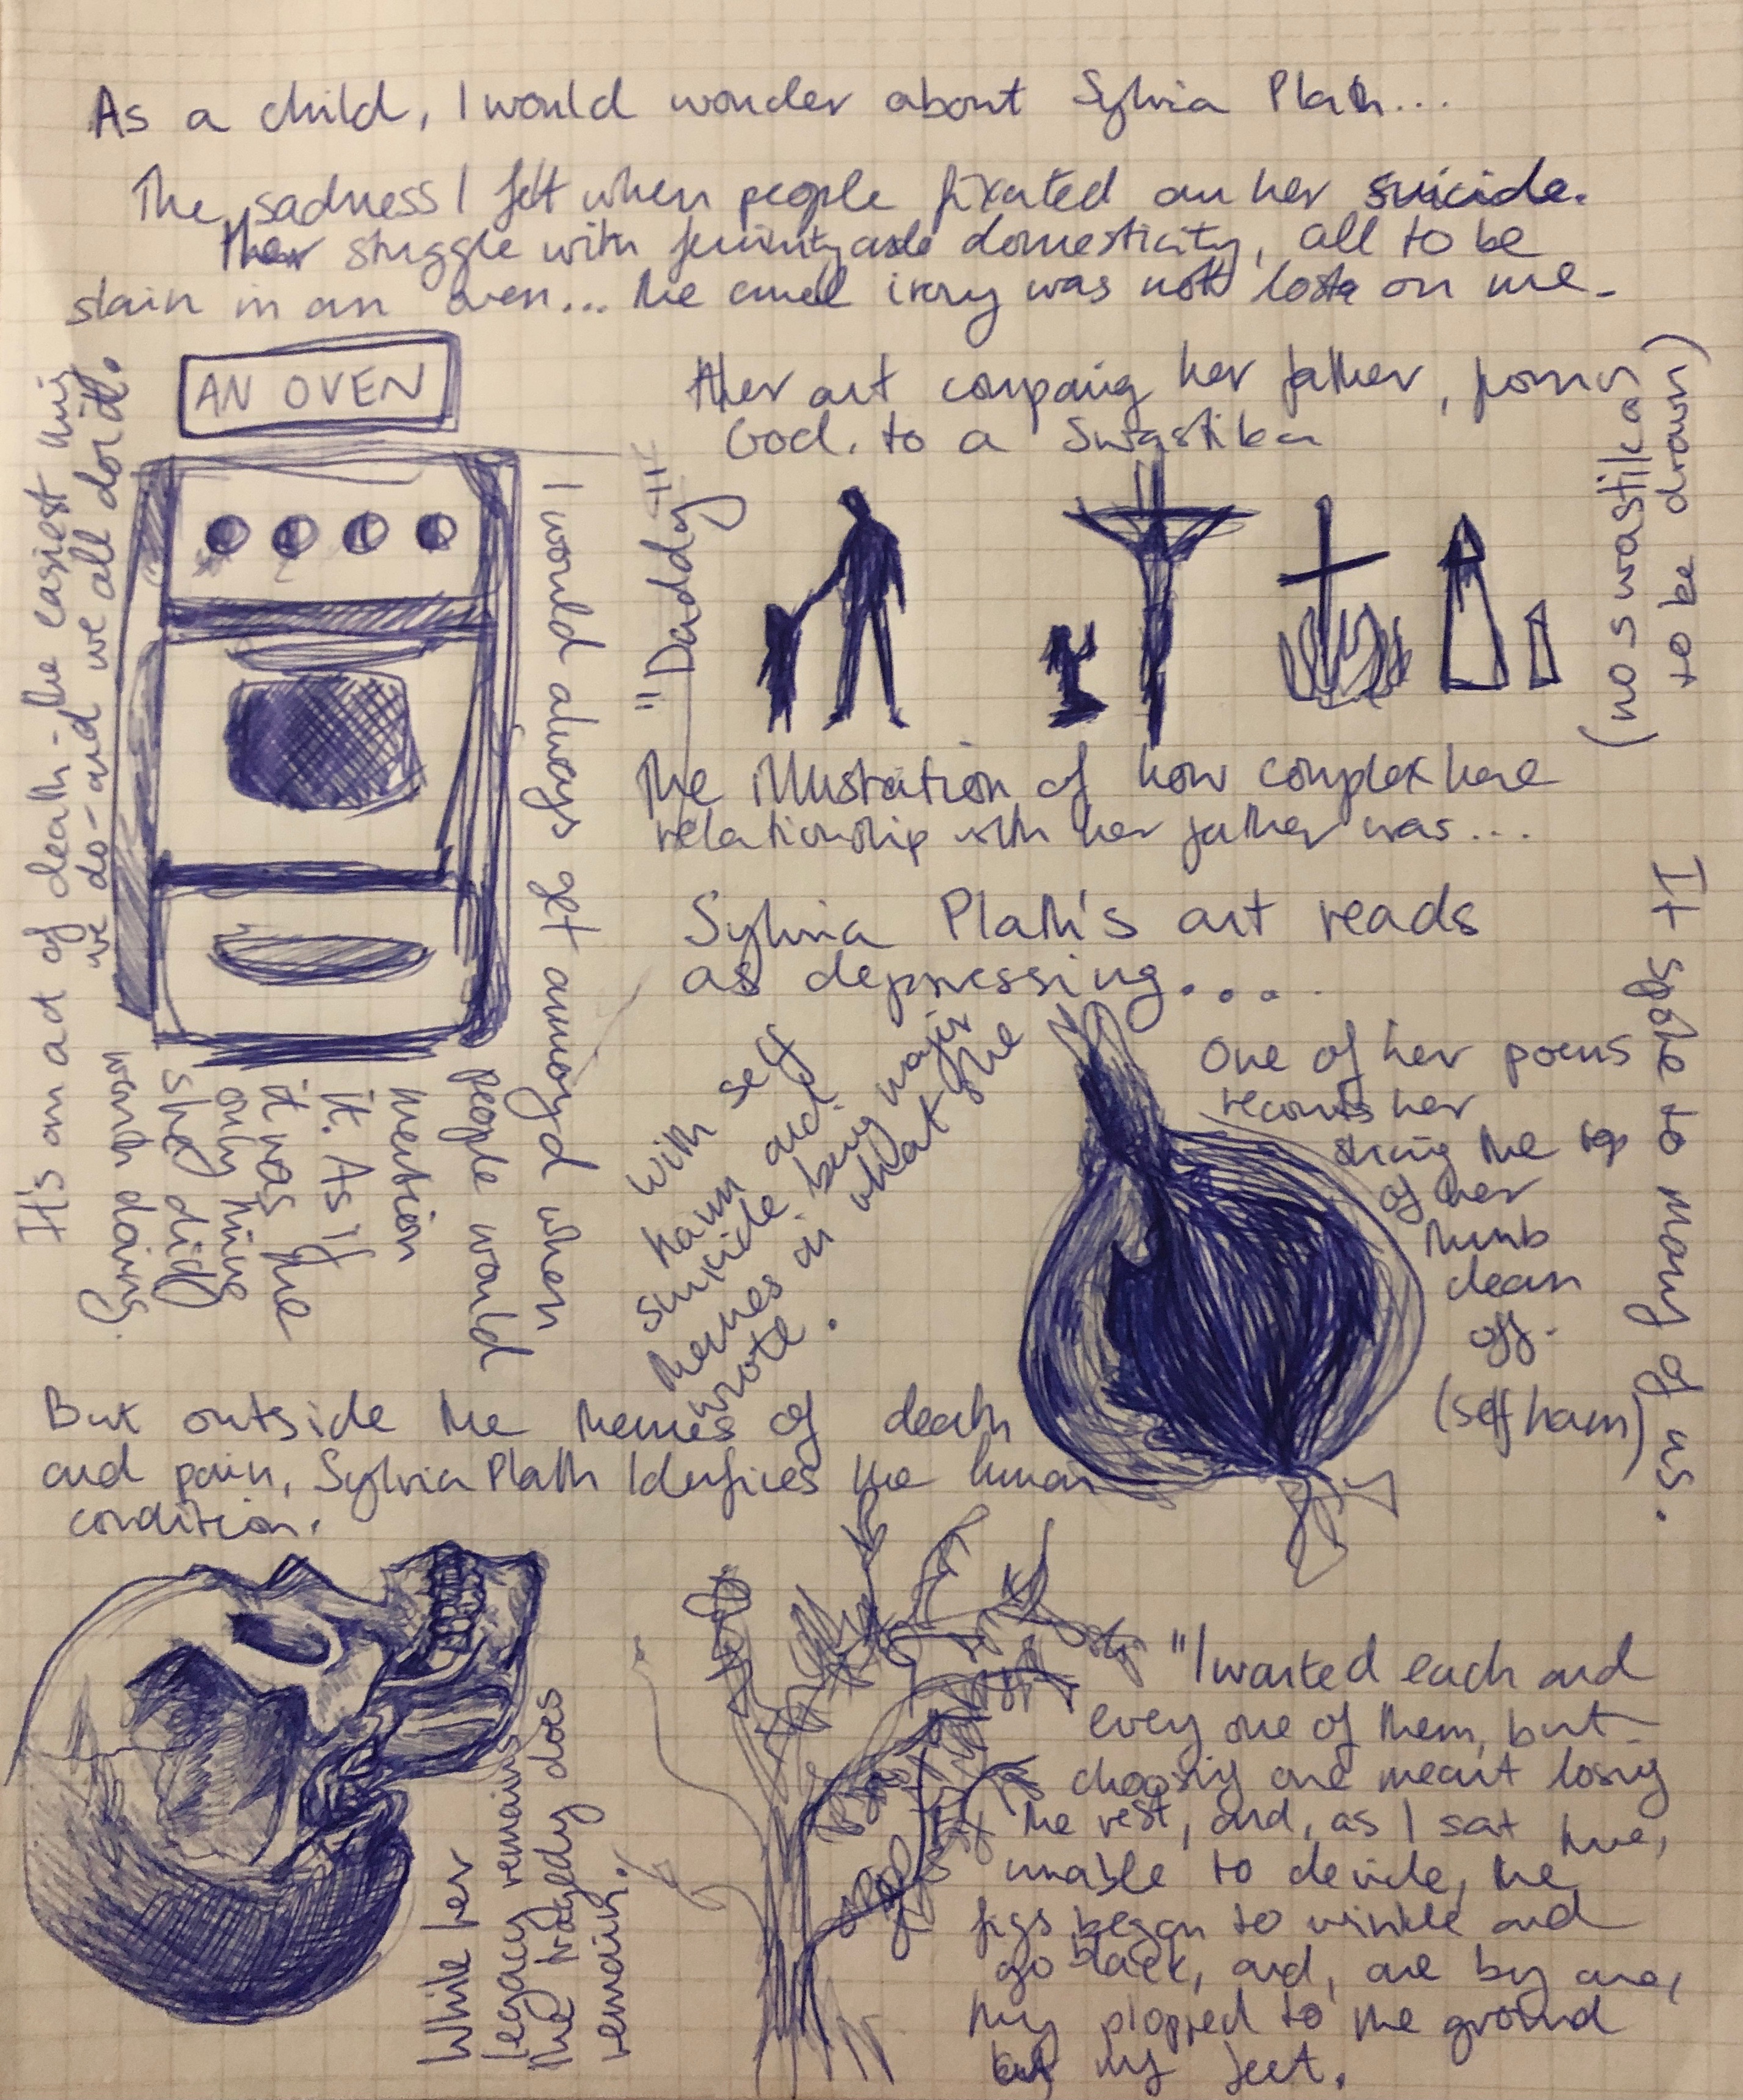 As a child, I would wonder about Sylvia Plath...
The sadness I felt when people fixated on her suicide.
Her struggle with and domesticity, all to be
slain in an oven... The cruel irony was not lost on me.
AN OVEN
It's an act of death - the easiest thing
we do - and we all do it.
I would always get annoyed when
people would
mention
it. As if
it was the
only thing
she did
worth doing.
Her art comparing her father, former
God. to a Swastika
"Daddy"
(no swastikas
to be drawn)
The illustration of how complex her
relationship with her father was...
Sylvia Plath's art reads
as depressing....
with self
harm and
suicide being major
themes in what she
wrote.
One of her poems
recounts her
slicing the top
of her
thumb
clean
off.
(self harm)
It spoke to many of us.
But outside the themes of death
and pain, Sylvia Plath Identifies the human
condition.
While her
legacy remains
the tragedy does
remain.
"I wanted each and
every one of them, but
choosing one meant losing
the rest, and, as I sat there,
unable to decide, the
figs began to wrinkle and
go black, and, one by one,
they plopped to the ground
my feet.